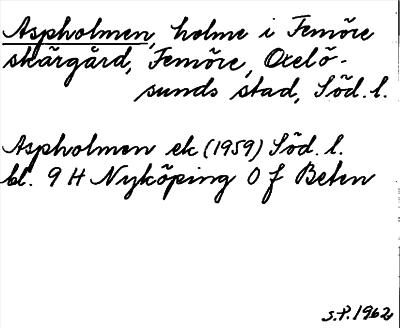 Aspholmen, holme i Femöre
skärgård, Femöre, Oxelö-
sunds stad, Söd. l.
Aspholmen ek (1959) Söd. l.
bl. 9 H Nyköping 0 f Beten
S.P. 1962